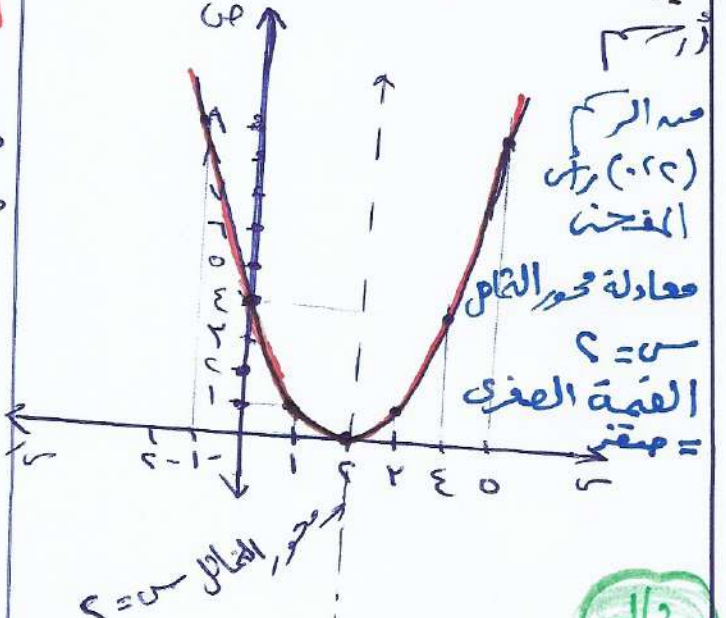 الرسم
ص
من الرسم
(٢،٠) رأس
المنحنى
معادلة محور التماثل
س = ٢
القيمة الصغرى
= صفر
٧
٦
٥
٤
٣
٢
١
سَ -٢ -١ ١ ٢ ٣ ٤ ٥ س
محور التماثل س = ٢